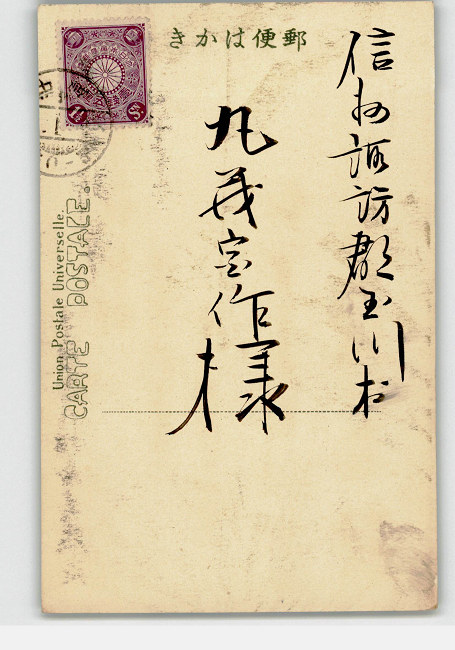 きかは便郵
信州諏訪郡玉川村
丸茂宗作様
Union Postale Universelle.
CARTE POSTALE.
1½ Sn.